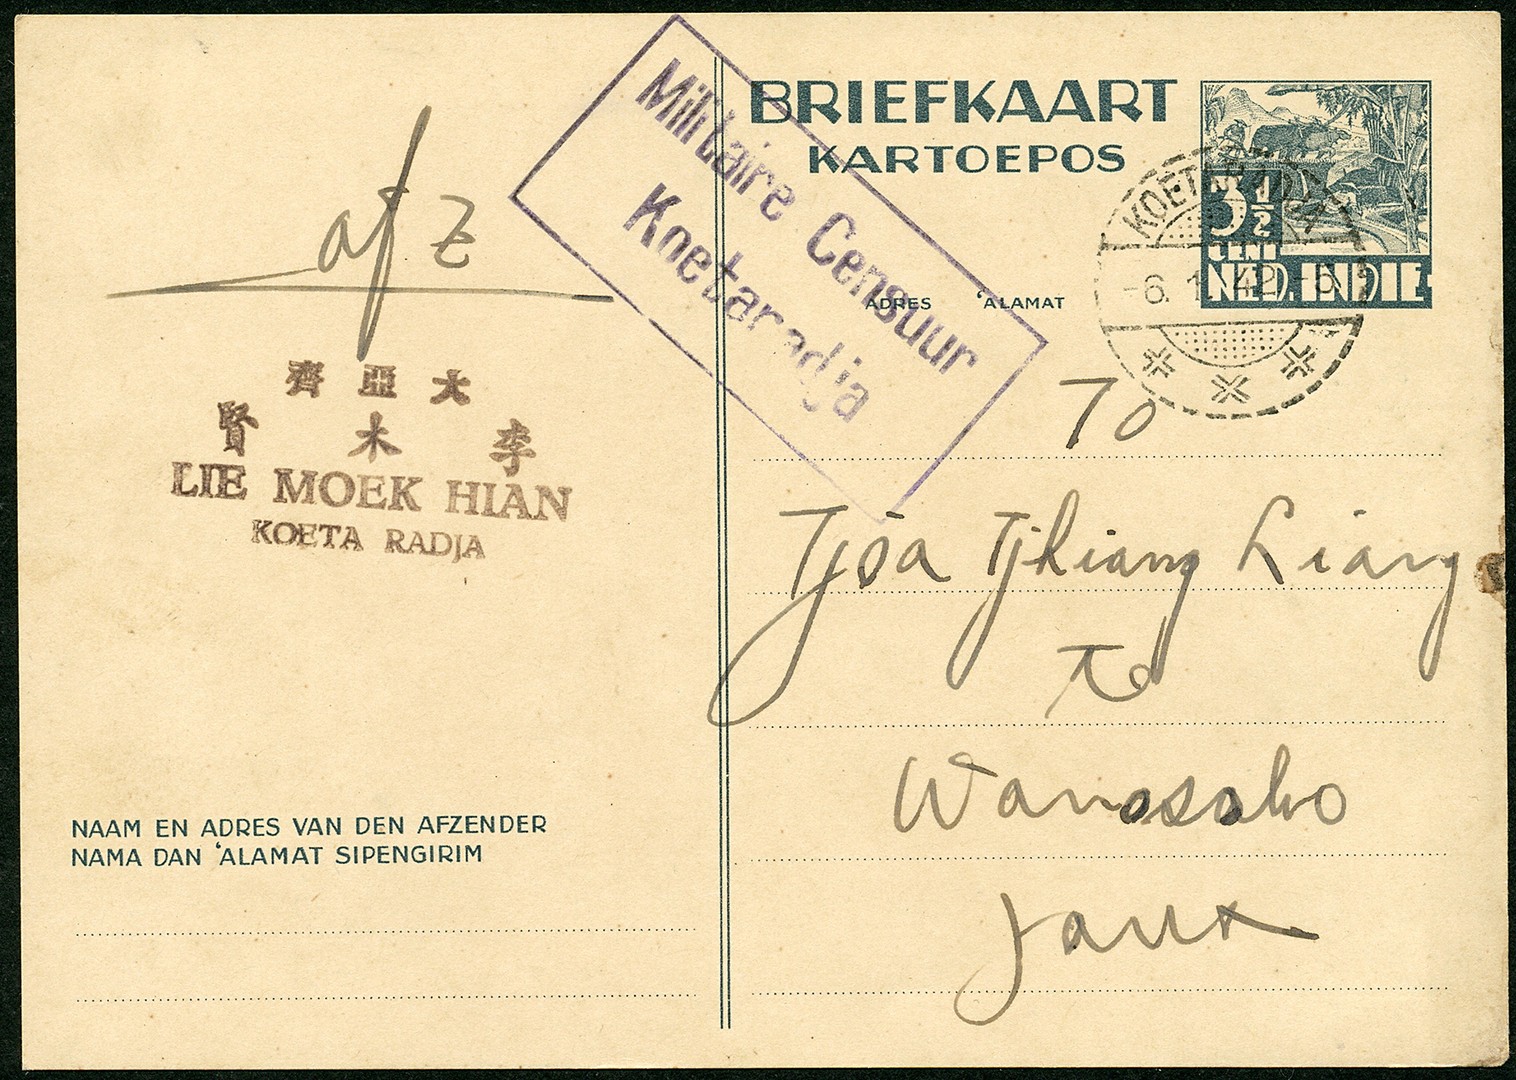 afz
大亞齊
李木賢
LIE MOEK HIAN
KOETA RADJA
NAAM EN ADRES VAN DEN AFZENDER
NAMA DAN ‘ALAMAT SIPENGIRIM
Militaire Censuur
Koetaradja
BRIEFKAART
KARTOEPOS
3½
CENT
NED. INDIE
KOETARADJA
6. 1. 42
ADRES ‘ALAMAT
To
Tjoa Tjhiang Liang
Te
Wonosobo
Java